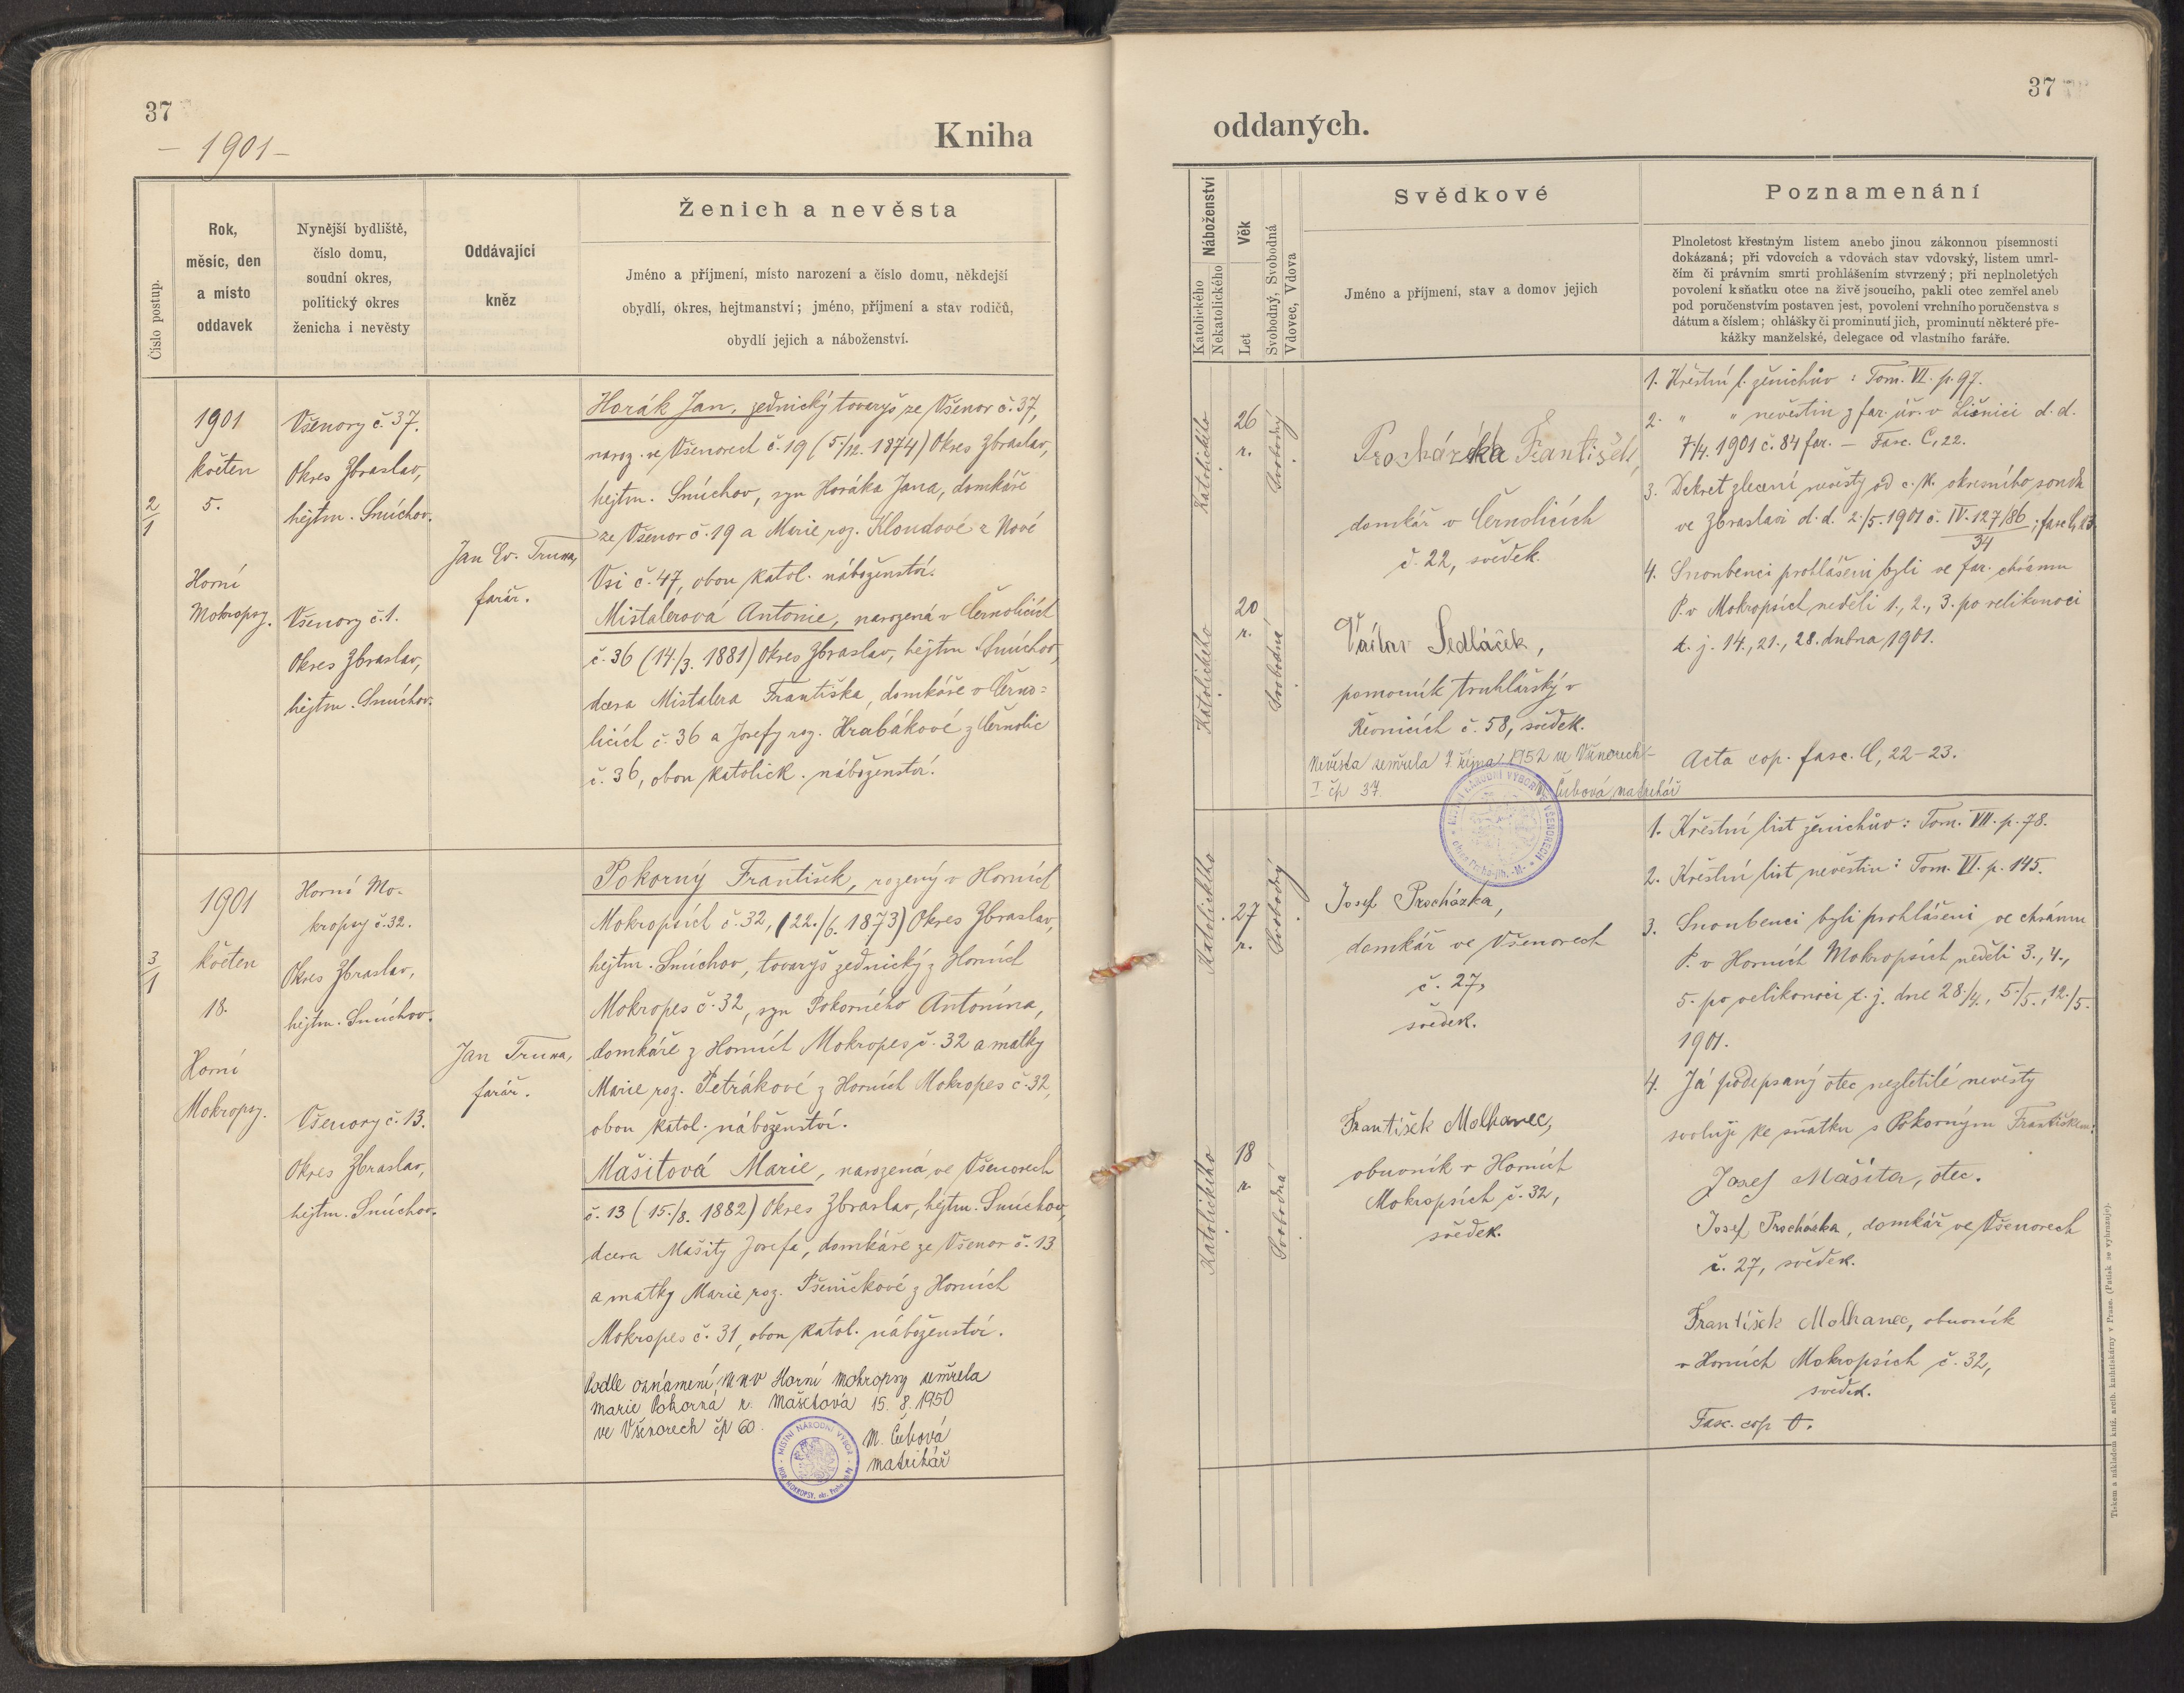 37
– 1901 –
Kniha
Číslo postup.
Rok,
měsíc, den
a místo
oddavek
Nynější bydliště,
číslo domu,
soudní okres,
politický okres
ženicha i nevěsty
Oddávající
kněz
Ženich a nevěsta
Jméno a příjmení, místo narození a číslo domu, někdejší
obydlí, okres, hejtmanství; jméno, příjmení a stav rodičů,
obydlí jejich a náboženství.
2/1
1901
květen
5.
Horní
Mokropsy.
Všenory č. 37.
Okres Zbraslav,
hejtm. Smíchov.
Všenory č. 1.
Okres Zbraslav,
hejtm. Smíchov.
Jan Ev. Truxa,
farář.
Horák Jan, zednický tovaryš ze Všenor č. 37,
naroz. ve Všenorech č. 19 (5./12. 1874) Okres Zbraslav,
hejtm. Smíchov, syn Horáka Jana, domkáře
ze Všenor č. 19 a Marie roz. Kloudové z Nové
Vsi č. 47, obou katol. náboženství.
Mistalerová Antonie, narozená v Černolicích
č. 36 (14./3. 1881) Okres Zbraslav, hejtm Smíchov,
dcera Mistalera Františka, domkáře v Černo=
licích č. 36 a Josefy roz. Hrabákové z Černolic
č. 36, obou katolick. náboženství.
3/1
1901
květen
18.
Horní
Mokropsy.
Horní Mo-
kropsy č. 32.
Okres Zbraslav,
hejtm. Smíchov.
Všenory č. 13.
Okres Zbraslav,
hejtm. Smíchov.
Jan Truxa,
farář.
Pokorný František, rozený v Horních
Mokropsích č. 32, (22./6. 1873) Okres Zbraslav,
hejtm. Smíchov, tovaryš zednický z Horních
Mokropes č. 32, syn Pokorného Antonína,
domkáře z Horních Mokropes č. 32 a matky
Marie roz. Petrákové z Horních Mokropes č. 32,
obou katol. náboženství.
Mašitová Marie, narozená ve Všenorech
č. 13 (15./8. 1882) Okres Zbraslav, hejtm. Smíchov,
dcera Mašity Josefa, domkáře ze Všenor č. 13
a matky Marie roz. Pšeničkové z Horních
Mokropes č. 31, obou katol. náboženství.
Podle oznámení MNV Horní Mokropsy zemřela
Marie Pokorná r. Mašitová 15. 8. 1950
ve Všenorech čp 60.
M. Čubová
matrikář
MÍSTNÍ NÁRODNÍ VÝBOR
HOR. MOKROPSY, okr. Praha
37
oddaných.
Náboženství
Katolického
Nekatolického
Věk
Let
Svobodný, Svobodná
Vdovec, Vdova
Svědkové
Jméno a příjmení, stav a domov jejich
Poznamenání
Plnoletost křestným listem anebo jinou zákonnou písemností
dokázaná; při vdovcích a vdovách stav vdovský, listem umrl-
čím či právním smrti prohlášením stvrzený; při neplnoletých
povolení k sňatku otce na živě jsoucího, pakli otec zemřel aneb
pod poručenstvím postaven jest, povolení vrchního poručenstva s
dátum a číslem; ohlášky či prominutí jich, prominutí některé pře-
kážky manželské, delegace od vlastního faráře.
Katolického
26
r.
Svobodný
Katolického
20
r.
Svobodná
Procházka František,
domkář v Černolicích
č. 22, svědek.
Václav Sedláček,
pomocník truhlářský v
Řevnicích č. 58, svědek.
Nevěsta zemřela 7 října 1952 ve Všenorech
I čp 37. Čubová matrikář
MÍSTNÍ NÁRODNÍ VÝBOR VE VŠENORECH
okres Praha-jih.
1. Křestní l. ženichův: Tom. VI. p. 97.
2. " " nevěstin z far. úř. v Líšnici d. d.
7./4. 1901 č. 84 far. – Fasc. C, 22.
3. Dekret zletění nevěsty od c. k. okresního soudu
ve Zbraslavi d. d. 2./5. 1901 č. IV. 127/86; fasc. C, 23
34
4. Snoubenci prohlášeni byli ve far. chrámu
P. v Mokropsích neděli 1., 2., 3. po velikonoci
t. j. 14., 21., 28. dubna 1901.
Acta cop. fasc. C, 22–23.
Katolického
27
r.
Svobodný
Katolického
18
r.
Svobodná
Josef Procházka,
domkář ve Všenorech
č. 27,
svědek.
František Molhanec,
obuvník v Horních
Mokropsích č. 32,
svědek.
1. Křestní list ženichův: Tom. VII. p. 78.
2. Křestní list nevěstin: Tom. VI. p. 145.
3. Snoubenci byli prohlášeni ve chrámu
P. v Horních Mokropsích neděli 3., 4.,
5. po velikonoci t. j. dne 28./4., 5./5., 12./5.
1901.
4. Já podepsaný otec nezletilé nevěsty
svoluji ke sňatku s Pokorným Františkem:
Josef Mašita, otec.
Josef Procházka, domkář ve Všenorech
č. 27, svědek.
František Molhanec, obuvník
v Horních Mokropsích č. 32,
svědek.
Fasc. cop
Tiskem a nákladem kníž. arcib. knihtiskárny v Praze. (Patisk se vyhrazuje).